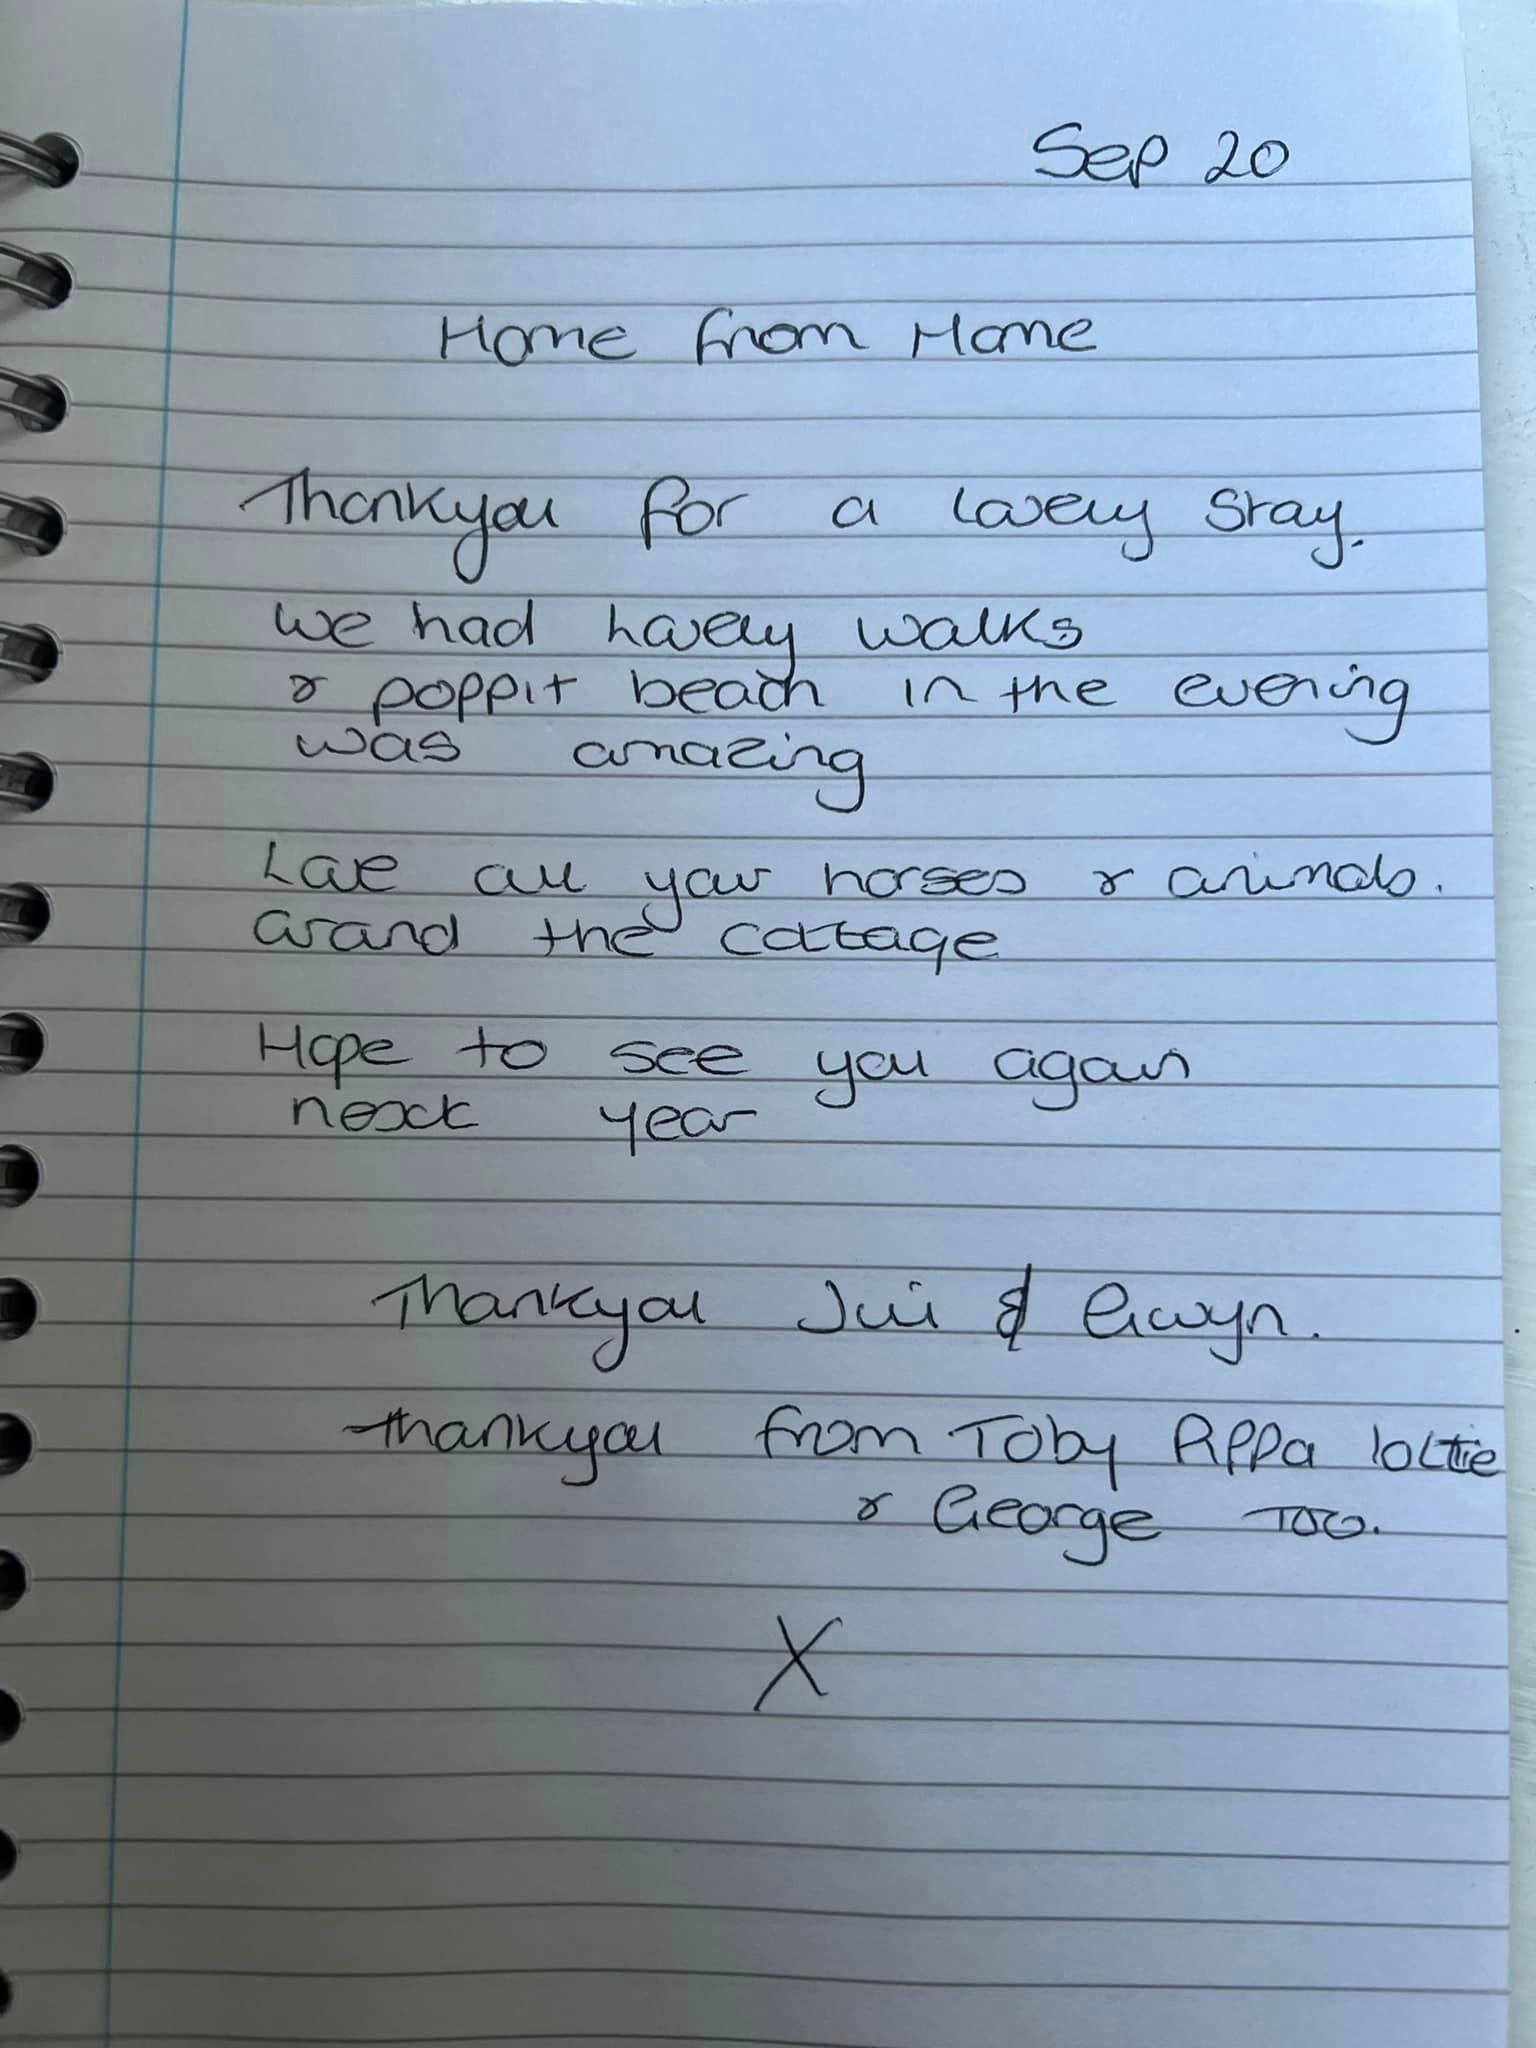 Sep 20
Home from Home
Thankyou for a lovely stay.
We had lovely walks
& poppit beach in the evening
was amazing
Love all your horses & animals.
Around the cottage
Hope to see you again
next year
Thankyou Juli & Gwyn.
Thankyou from Toby Pippa lottie
& George Too.
X